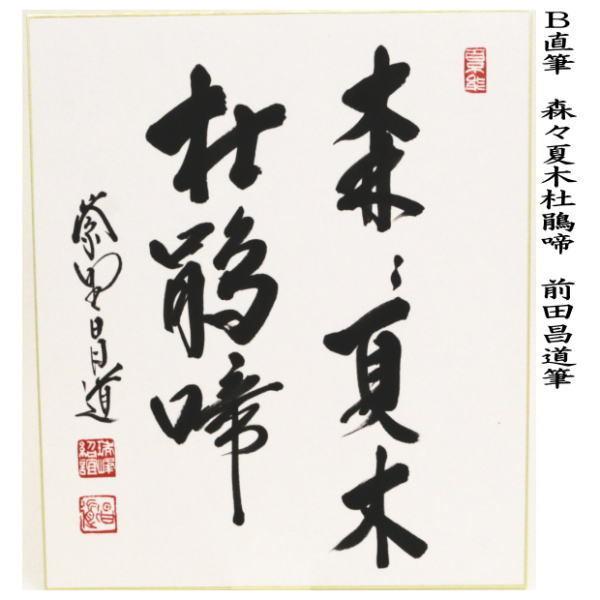 B直筆　森々夏木杜鵑啼　前田昌道筆
森〻夏木
杜鵑啼
紫野昌道